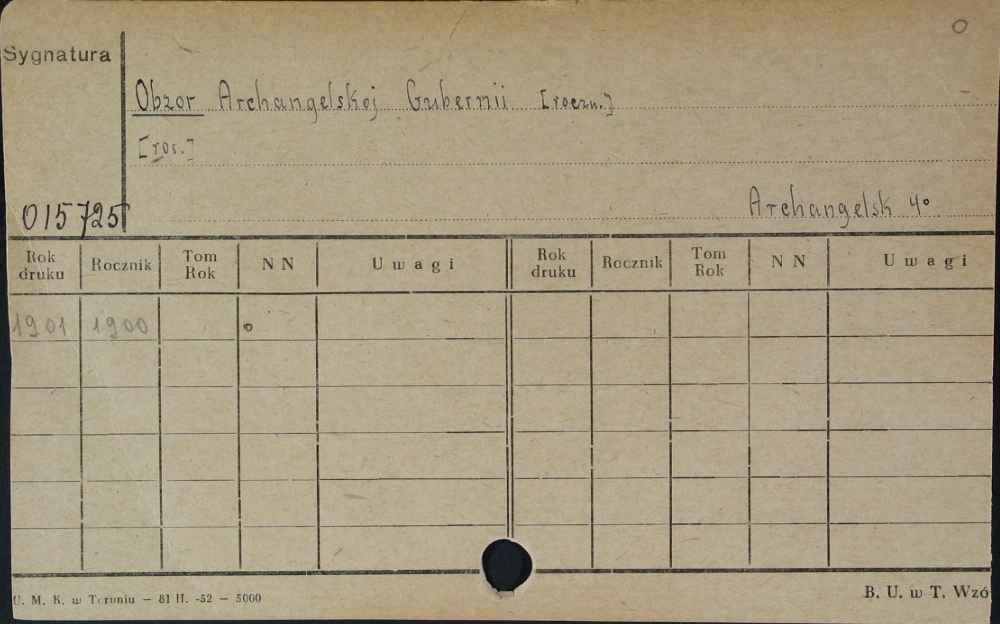 O
Sygnatura
Obzor Archangelskoj Gubernii [roczn.]
[ros.]
015725
Archangelsk 4°
Rok druku Rocznik Tom Rok N N Uwagi Rok druku Rocznik Tom Rok N N Uwagi
1901 1900 o
U. M. K. w Toruniu — 81 H. -52 — 5000
B. U. w T. Wzó